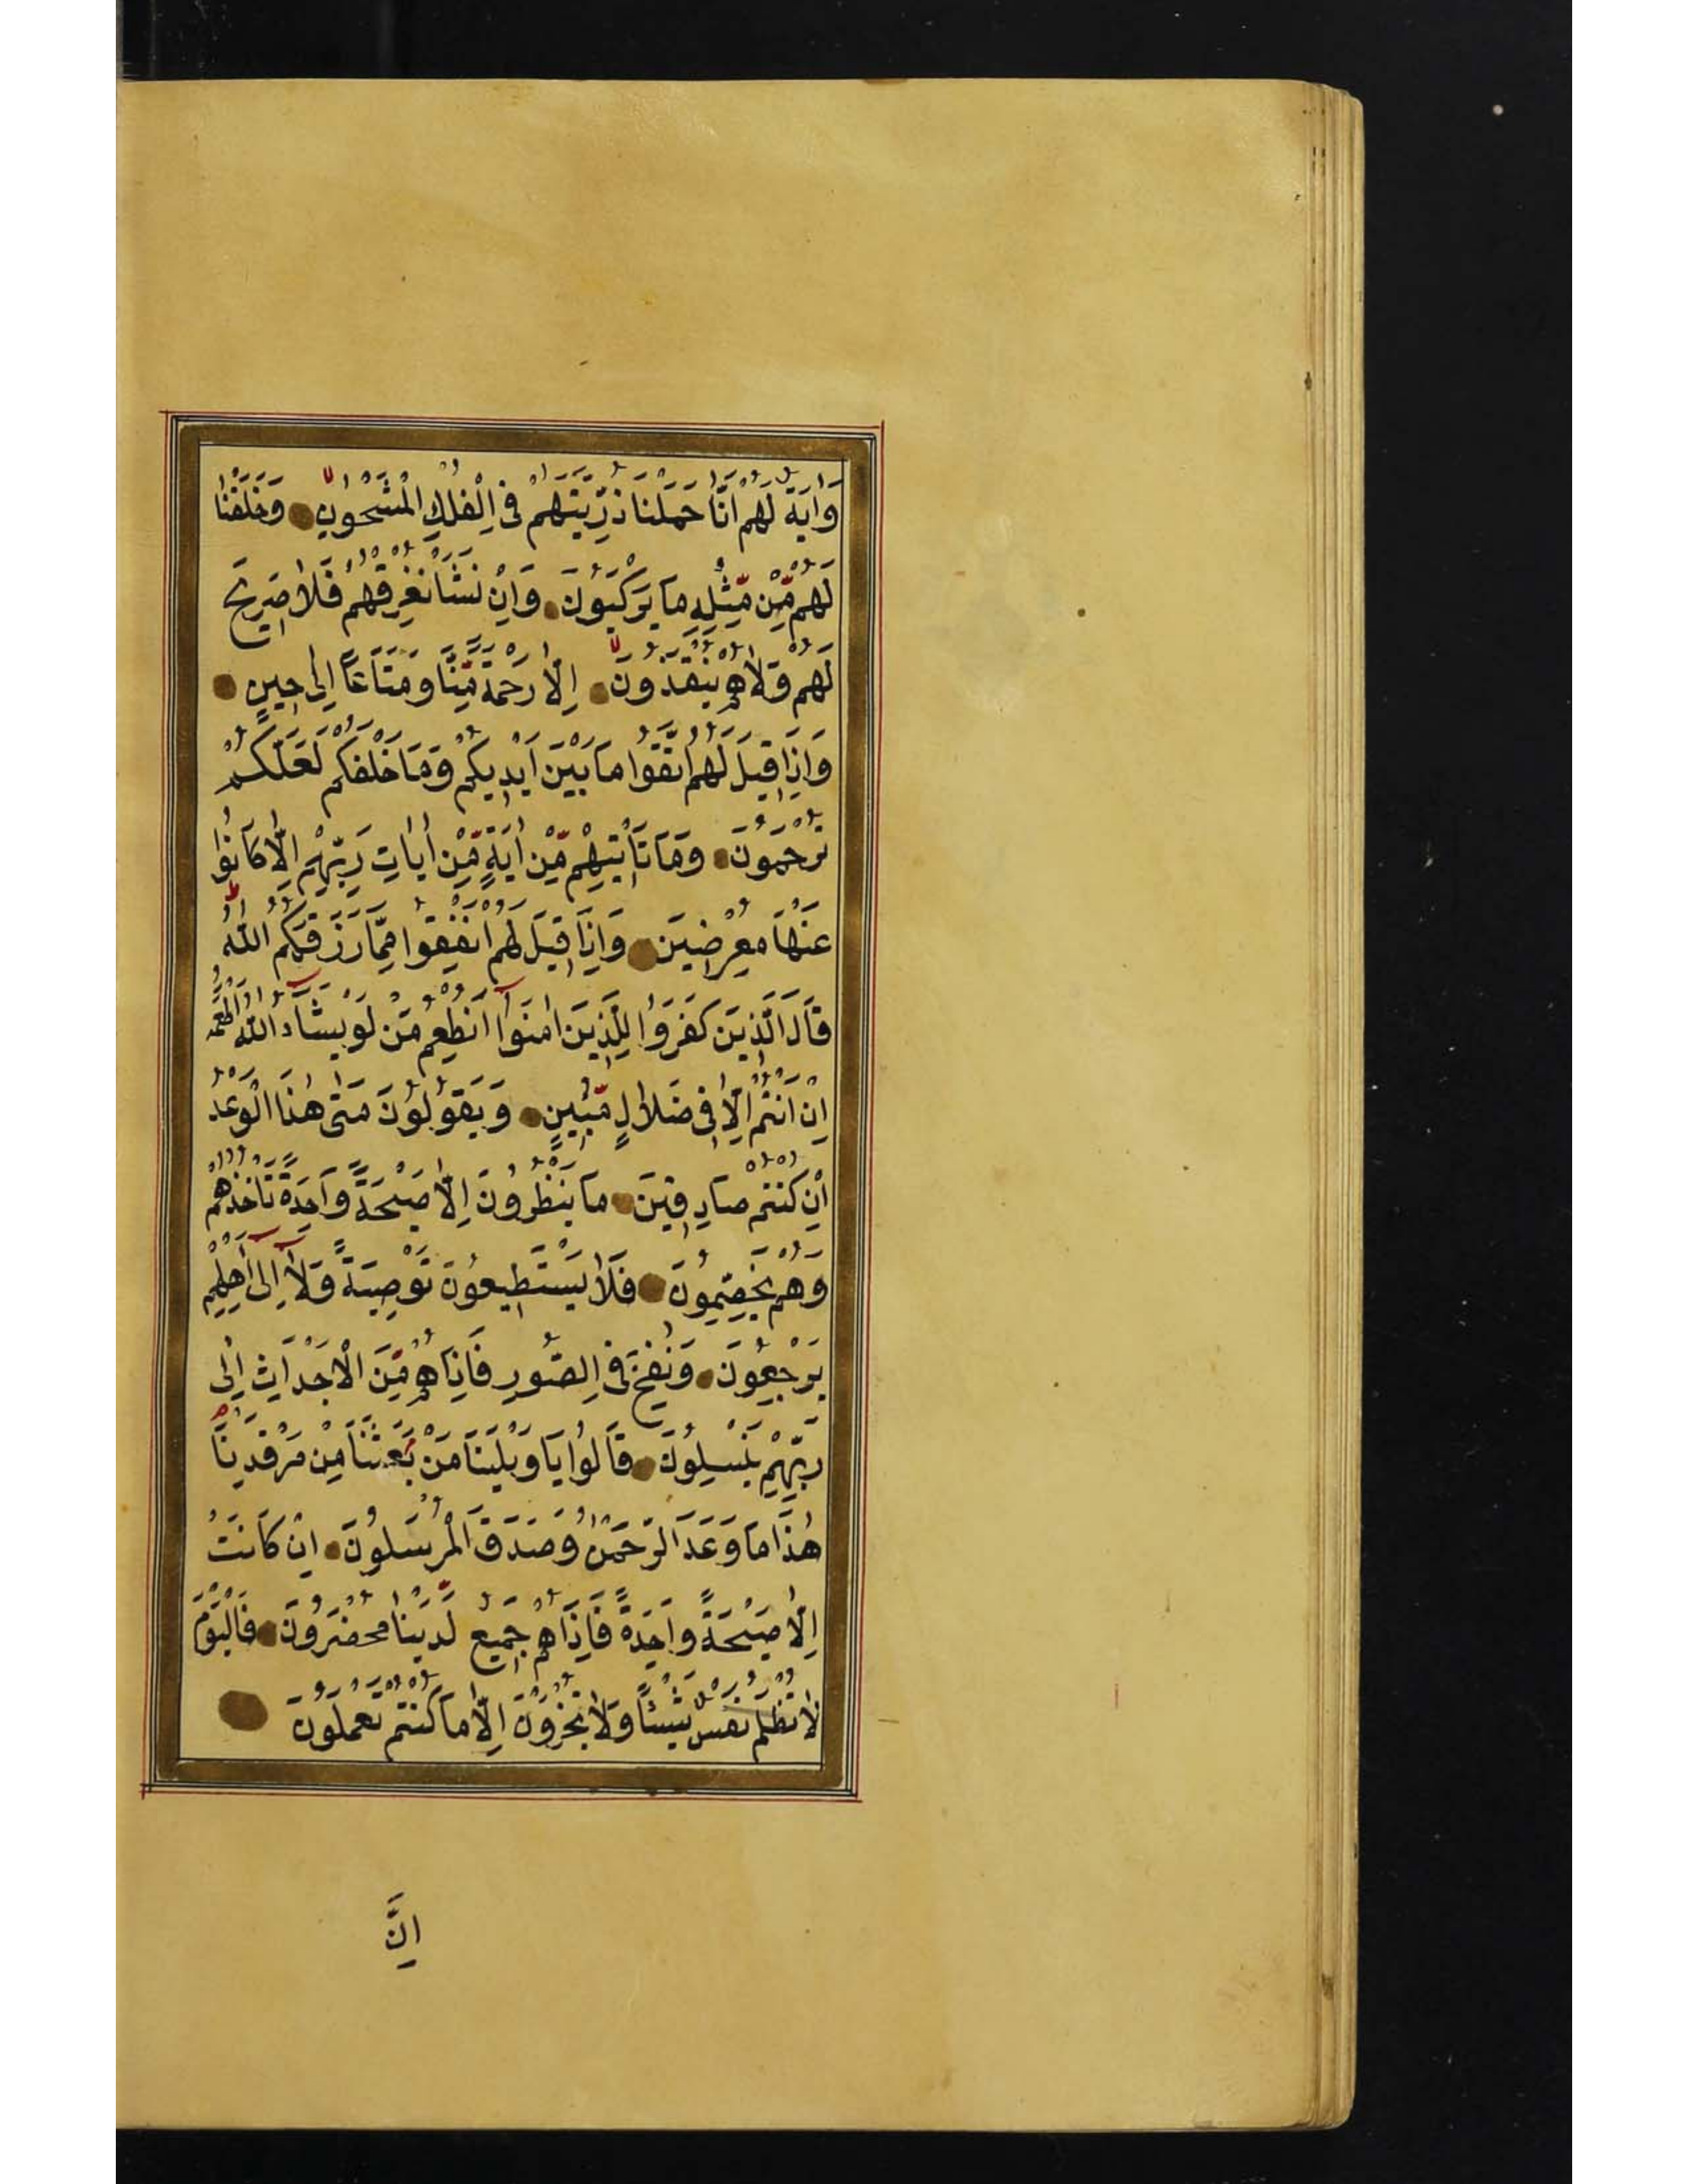 وَاٰيَةٌ لَهُمْ اَنَّا حَمَلْنَا ذُرِّيَّتَهُمْ فِى الْفُلْكِ الْمَشْحُونِ وَخَلَقْنَا
لَهُمْ مِّنْ مِّثْلِهِ مَا يَرْكَبُونَ وَاِنْ نَشَأْ نُغْرِقْهُمْ فَلَا صَرِيخَ
لَهُمْ وَلَا هُمْ يُنْقَذُونَ اِلَّا رَحْمَةً مِّنَّا وَمَتَاعًا اِلٰى حِينٍ
وَاِذَا قِيلَ لَهُمُ اتَّقُوا مَا بَيْنَ اَيْدِيكُمْ وَمَا خَلْفَكُمْ لَعَلَّكُمْ
تُرْحَمُونَ وَمَا تَأْتِيهِمْ مِّنْ اٰيَةٍ مِّنْ اٰيَاتِ رَبِّهِمْ اِلَّا كَانُوا
عَنْهَا مُعْرِضِينَ وَاِذَا قِيلَ لَهُمْ اَنْفِقُوا مِمَّا رَزَقَكُمُ اللّٰهُ
قَالَ الَّذِينَ كَفَرُوا لِلَّذِينَ اٰمَنُوا اَنُطْعِمُ مَنْ لَوْ يَشَاءُ اللّٰهُ اَطْعَمَهُ
اِنْ اَنْتُمْ اِلَّا فِى ضَلَالٍ مُّبِينٍ وَيَقُولُونَ مَتٰى هٰذَا الْوَعْدُ
اِنْ كُنْتُمْ صَادِقِينَ مَا يَنْظُرُونَ اِلَّا صَيْحَةً وَاحِدَةً تَأْخُذُهُمْ
وَهُمْ يَخِصِّمُونَ فَلَا يَسْتَطِيعُونَ تَوْصِيَةً وَلَا اِلٰى اَهْلِهِمْ
يَرْجِعُونَ وَنُفِخَ فِى الصُّورِ فَاِذَا هُمْ مِّنَ الْاَجْدَاثِ اِلٰى
رَبِّهِمْ يَنْسِلُونَ قَالُوا يَا وَيْلَنَا مَنْ بَعَثَنَا مِنْ مَرْقَدِنَا
هٰذَا مَا وَعَدَ الرَّحْمٰنُ وَصَدَقَ الْمُرْسَلُونَ اِنْ كَانَتْ
اِلَّا صَيْحَةً وَاحِدَةً فَاِذَا هُمْ جَمِيعٌ لَّدَيْنَا مُحْضَرُونَ فَالْيَوْمَ
لَا تُظْلَمُ نَفْسٌ شَيْئًا وَلَا تُجْزَوْنَ اِلَّا مَا كُنْتُمْ تَعْمَلُونَ
اِنَّ